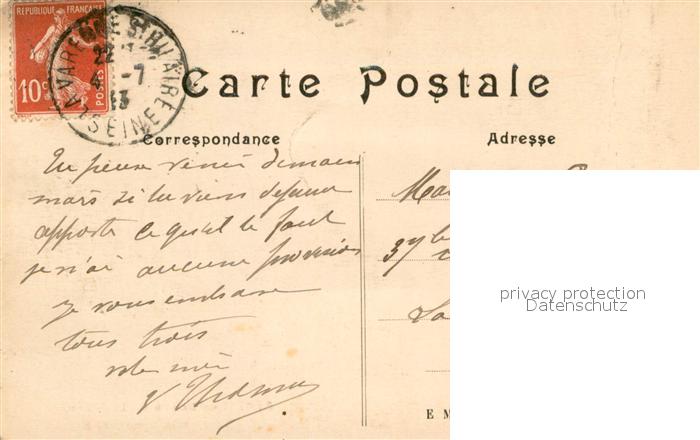 REPUBLIQUE FRANÇAISE
10c POSTES
VARENNE St HILAIRE
22
4 -7
13
SEINE
Carte Postale
Correspondance
Adresse
Tu peux venir demain
mais si tu viens dejeuner
apporte ce qu'il te faut
je n'ai aucune provision
je vous embrasse
tous trois
votre mère
V Thomas
37
privacy protection
Datenschutz
E M